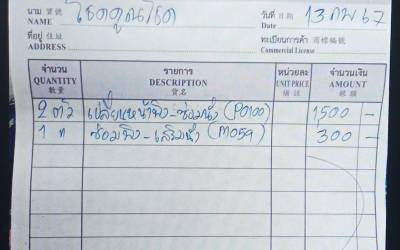 นาม 寶號 NAME โชคคูณโชค วันที่ 日期 Date 13 กพ 67
ที่อยู่ 住址 ADDRESS ทะเบียนการค้า 商標編號 Commercial License
จำนวน QUANTITY 數量 รายการ DESCRIPTION 貨名 หน่วยละ UNIT PRICE 備註 จำนวนเงิน AMOUNT 銀額
2 ตัว เปลี่ยนหน้าพิง-ซ่อมนั่ง (P0100) 1,500 -
1 ตัว ซ่อมพิง-เสริมน้ำ (M059) 300 -